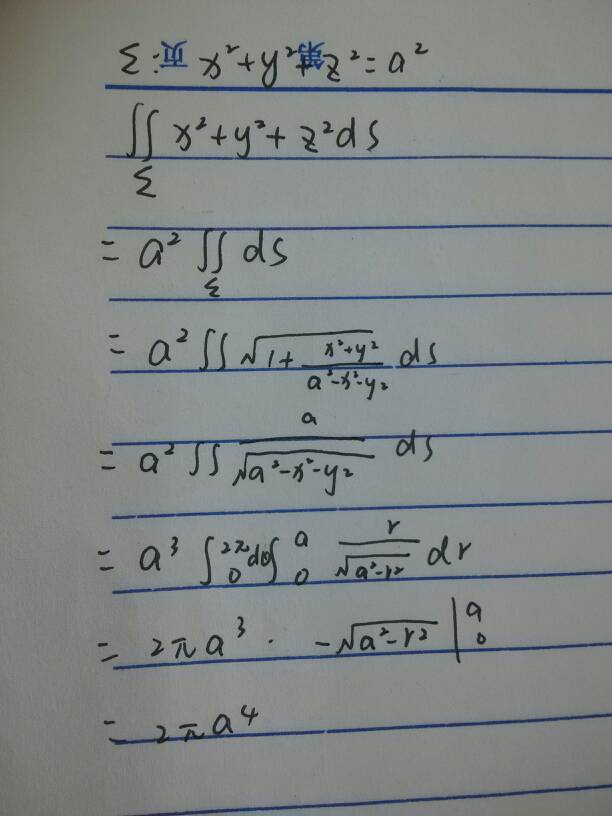 Σ: x²+y²+z²=a²
页 第
∬_Σ x²+y²+z²ds
= a² ∬_Σ ds
= a² ∬ √(1+(x²+y²)/(a²-x²-y²)) ds
= a² ∬ a/√(a²-x²-y²) ds
= a³ ∫₀^{2π} dθ ∫₀^a r/√(a²-r²) dr
= 2πa³ · -√(a²-r²) |₀^a
= 2πa⁴